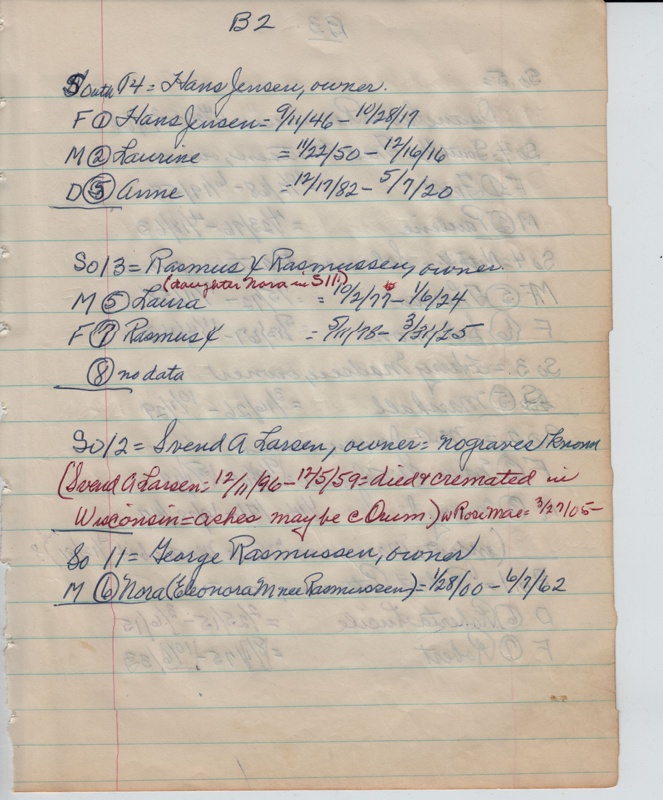 B2
South 14 = Hans Jensen, owner.
F ① Hans Jensen = 9/11/46 - 10/28/17
M ② Laurine = 11/22/50 - 12/16/16
D ⑤ Anne = 12/17/82 - 5/7/20
So 13 = Rasmus X Rasmussen, owner.
(daughter Nora in S 11)
M ⑤ Laura = 10/2/77 - 1/6/24
F ⑦ Rasmus X = 5/11/78 - 3/31/25
⑧ no data
So 12 = Svend A Larsen, owner = no graves known
(Svend A Larsen = 12/11/96 - 12/5/59 = died & cremated in
Wisconsin = ashes may be c Mum.) w Rose Mae = 3/27/05 -
So 11 = George Rasmussen, owner
M ⑥ Nora (Eleonora M nee Rasmussen) = 1/28/00 - 6/7/62